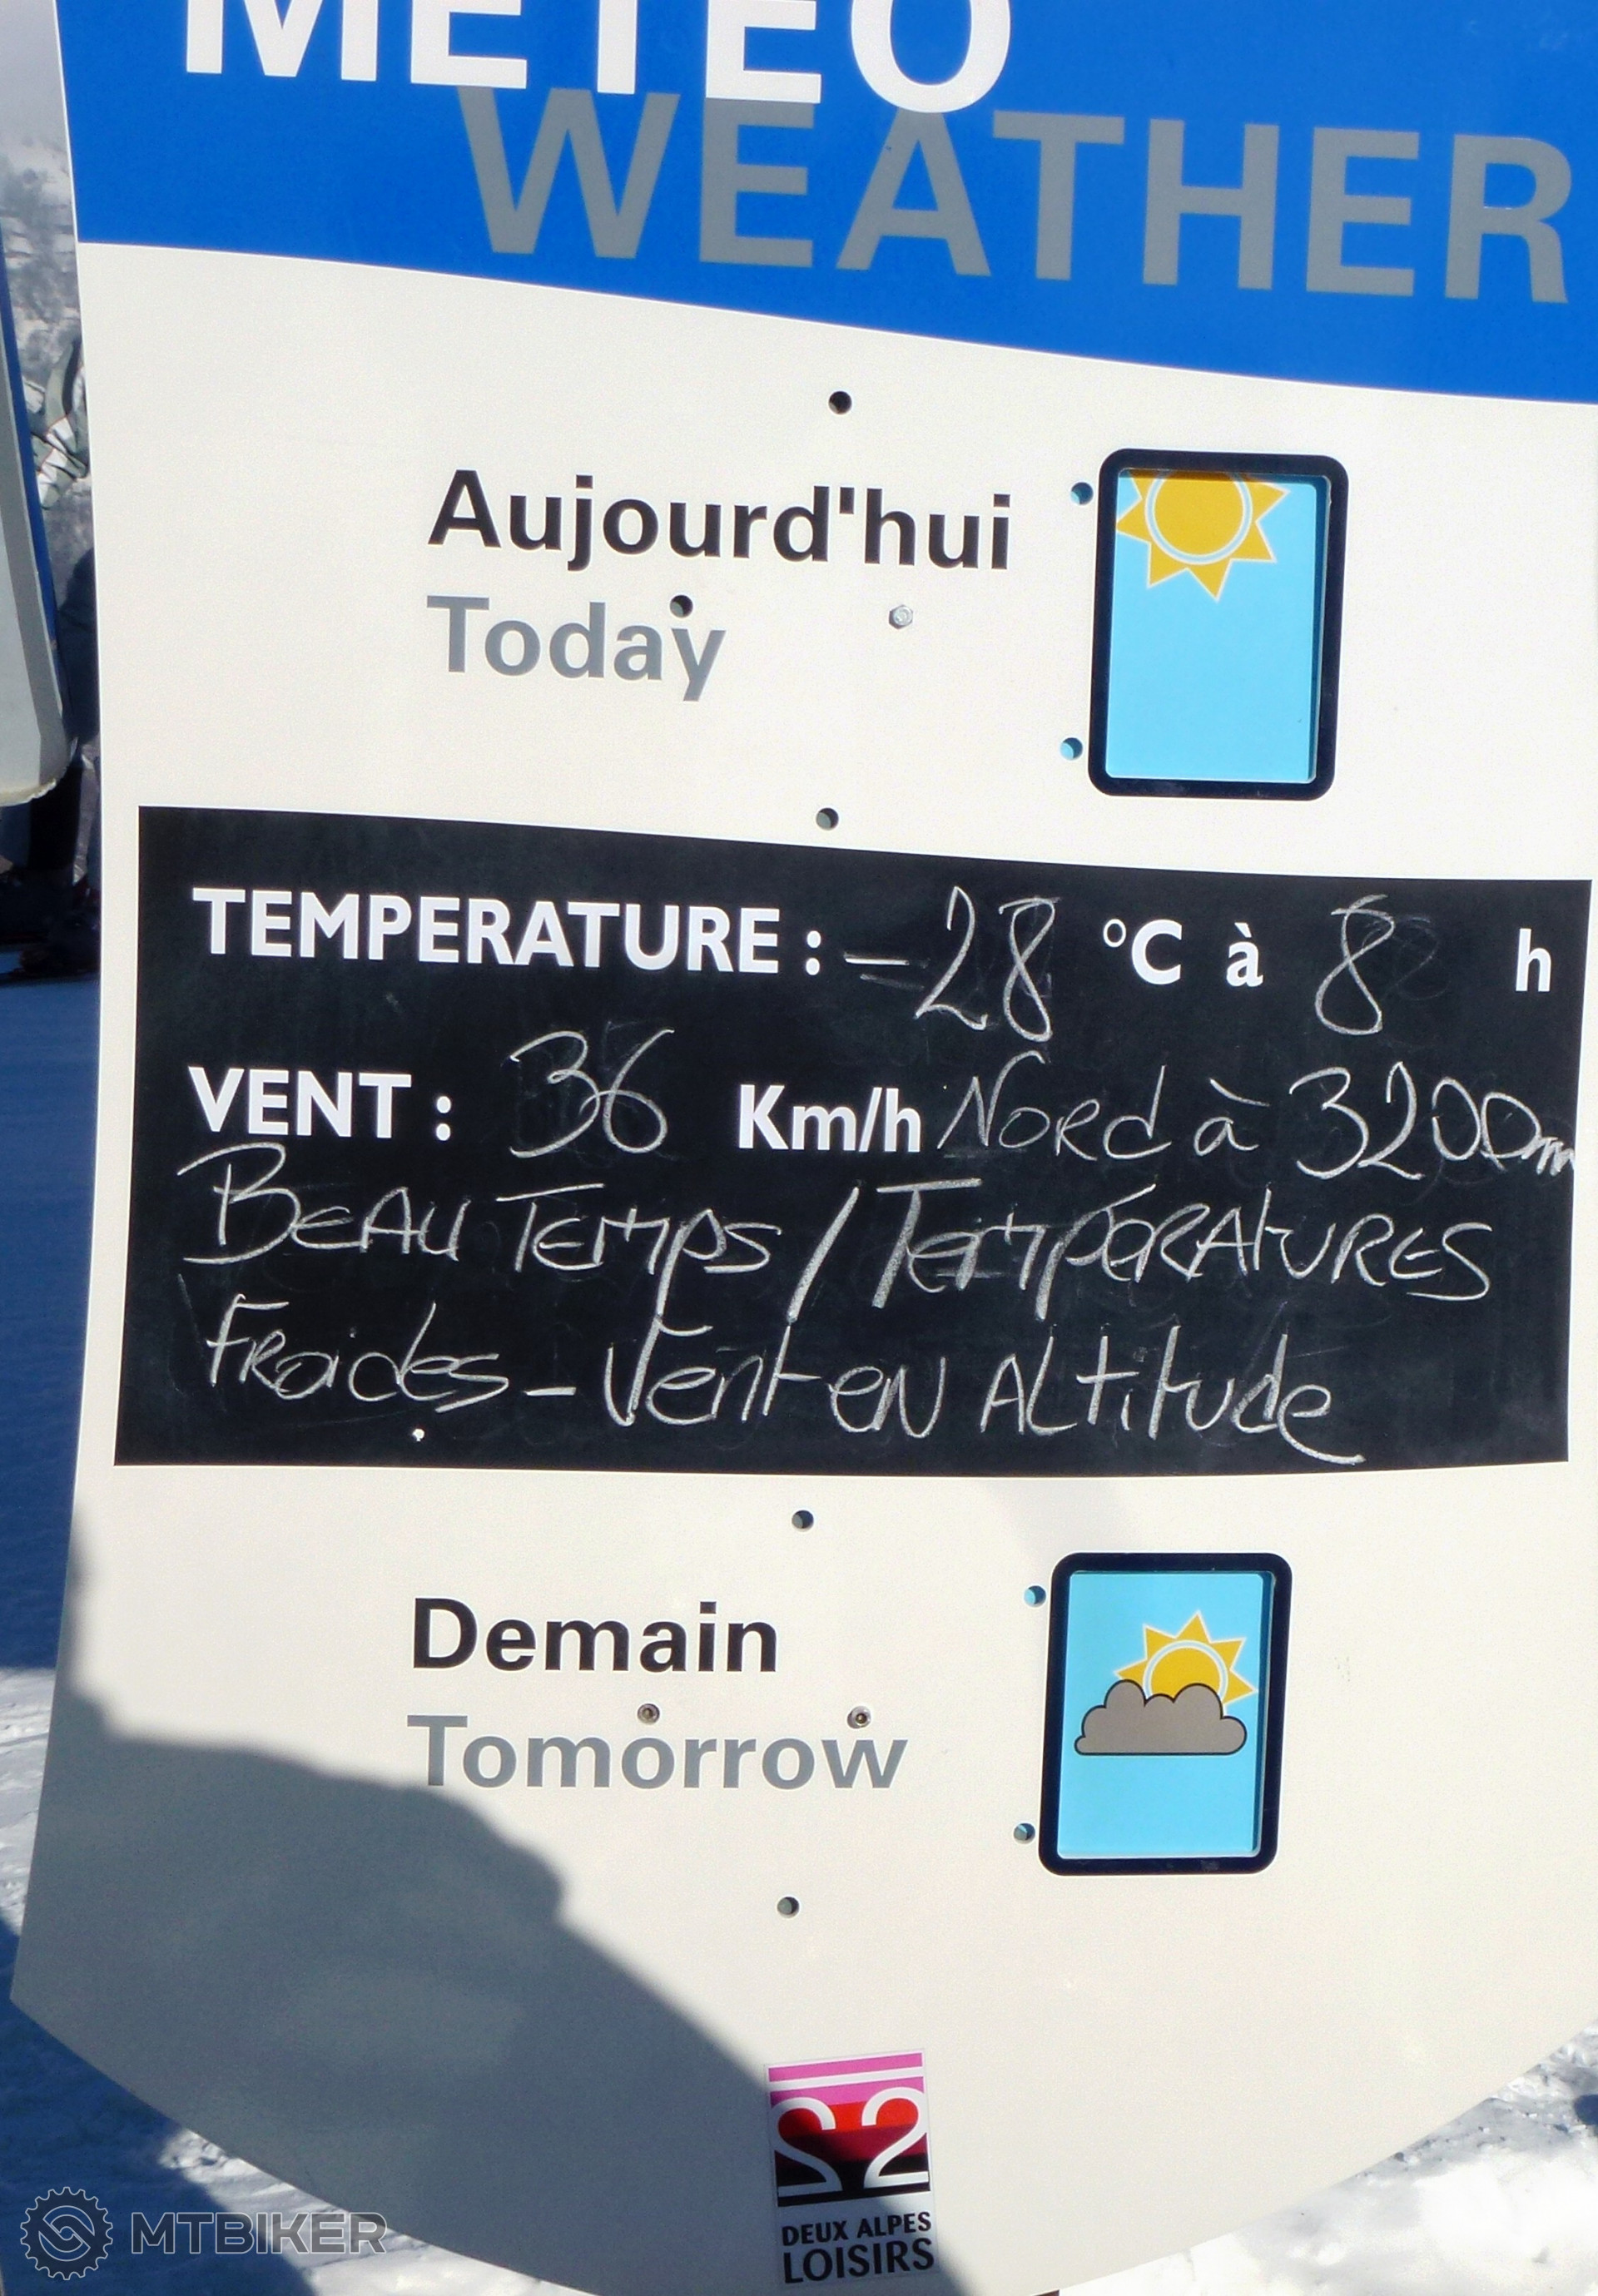 METEO
WEATHER
Aujourd'hui
Today
TEMPERATURE : -28 °C à 8 h
VENT : 36 Km/h Nord à 3200m
BEAU TEMPS / TEMPÉRATURES
FROIDES - Vent EN ALtitude
Demain
Tomorrow
22
DEUX ALPES
LOISIRS
MTBIKER